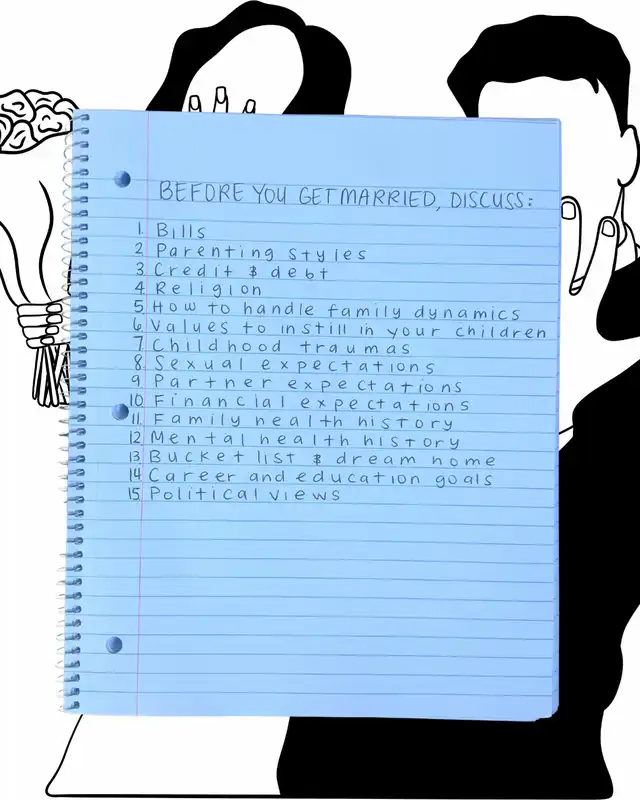 BEFORE YOU GET MARRIED, DISCUSS:
1. Bills
2 Parenting styles
3 Credit & debt
4 Religion
5 How to handle family dynamics
6 Values to instill in your children
7 Childhood traumas
8. Sexual expectations
9. Partner expectations
10 Financial expectations
11. Family health history
12 Mental health history
13 Bucket list & dream home
14 Career and education goals
15 Political views